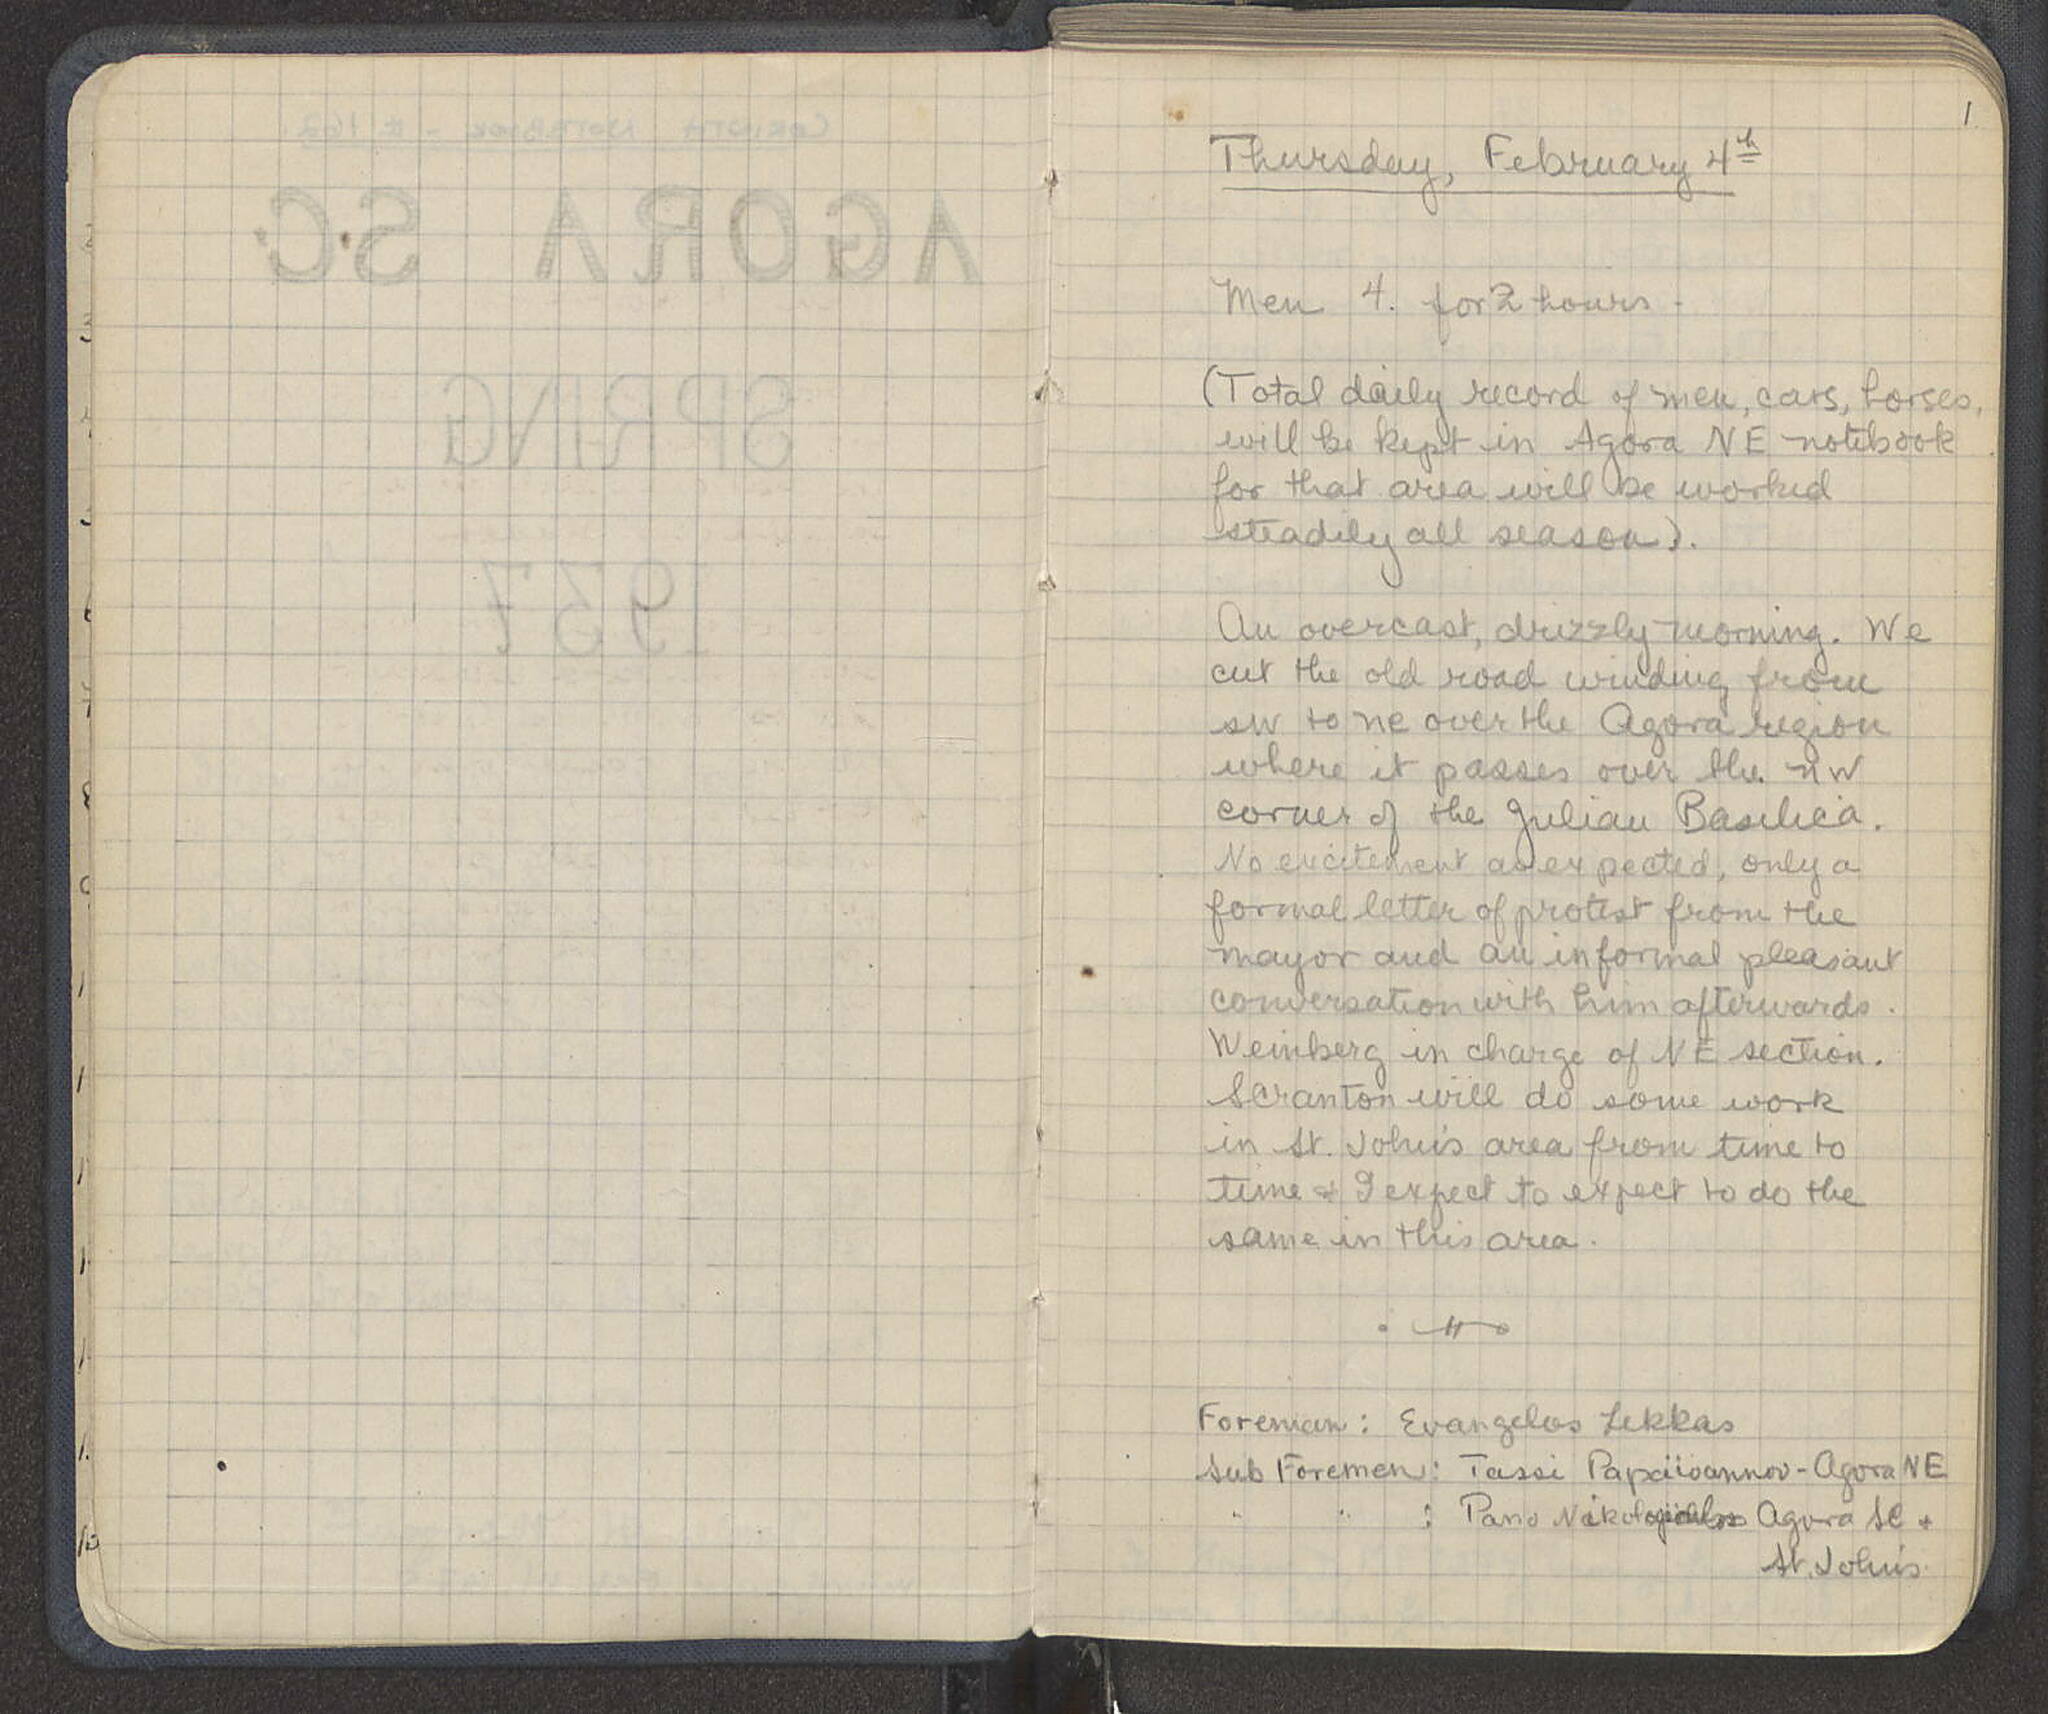 CORINTH NOTEBOOK - # 162
AGORA SC
SPRING
1937
1
Thursday, February 4th
Men 4. for 2 hours -
(Total daily record of men, cars, horses,
will be kept in Agora NE notebook
for that area will be worked
steadily all season).
An overcast, drizzly morning. We
cut the old road winding from
SW to NE over the Agora region
where it passes over the NW
corner of the Julian Basilica.
No excitement as expected, only a
formal letter of protest from the
mayor and an informal pleasant
conversation with him afterwards.
Weinberg in charge of NE section.
Scranton will do some work
in St. John's area from time to
time & I expect to expect to do the
same in this area.
Foreman: Evangelos Lekkas
Sub Foremen: Tassi Papaiioannou - Agora NE
" " : Pano Agora SC &
St. John's